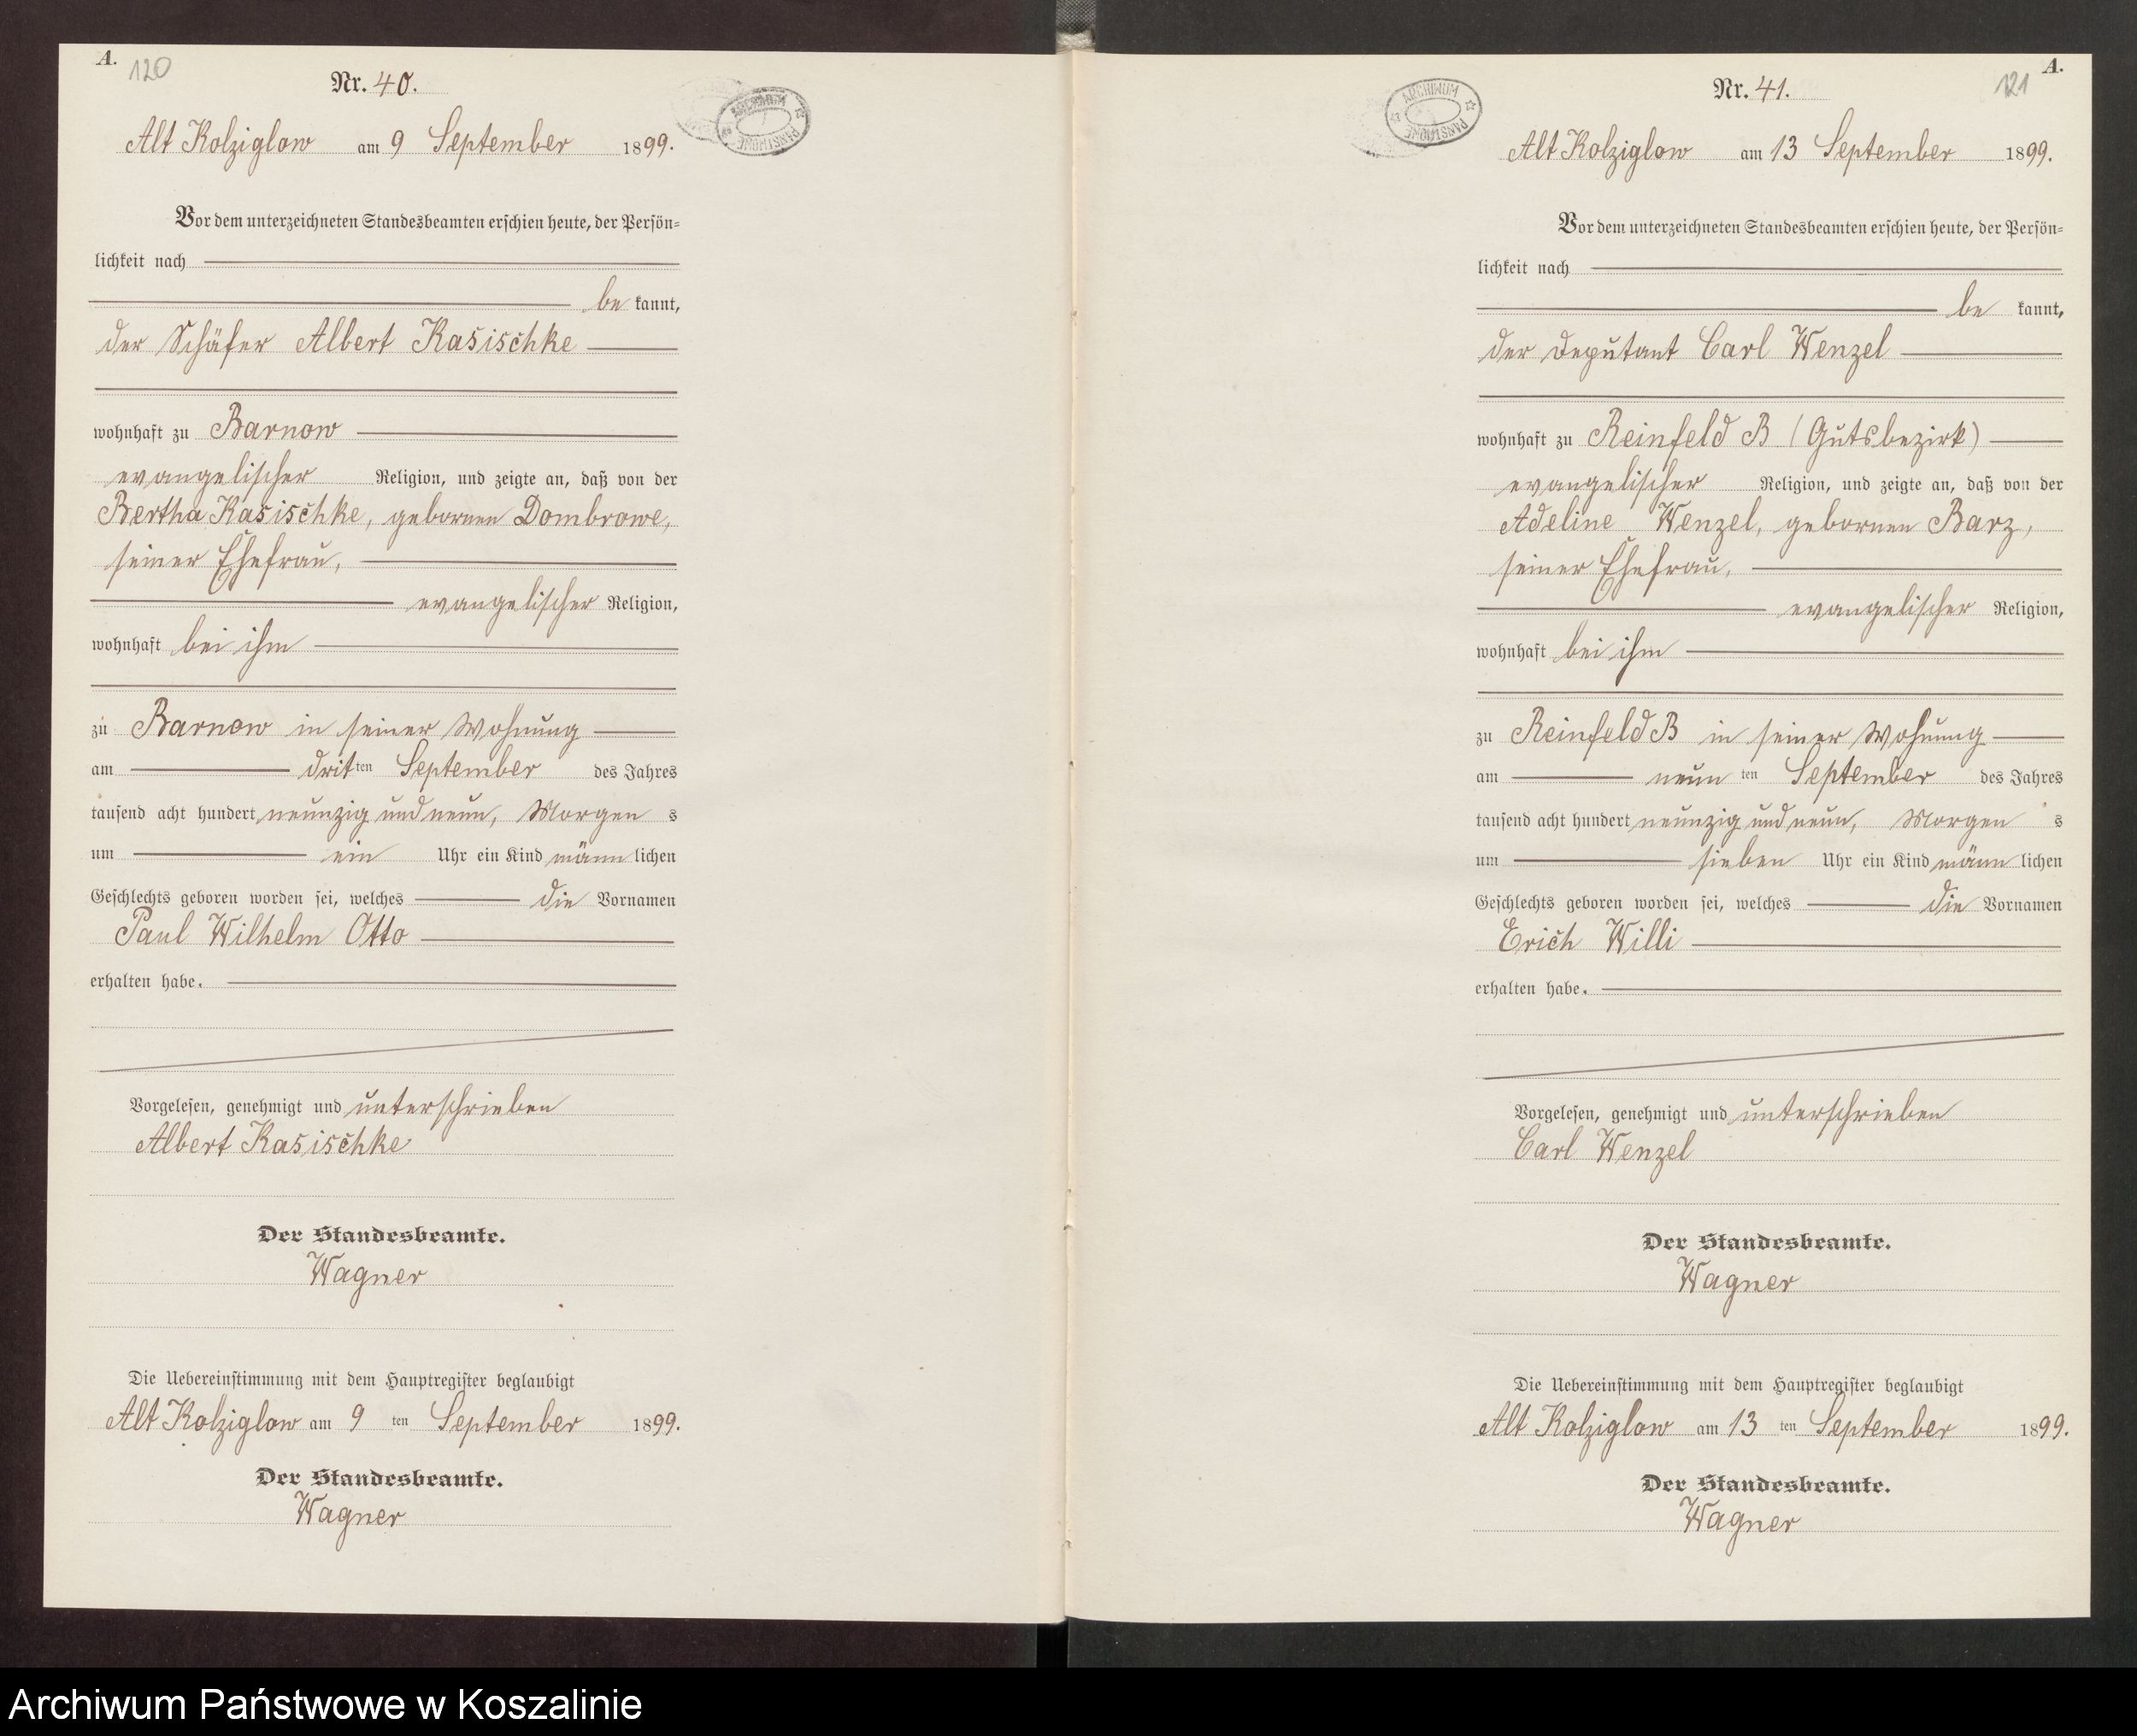 A.
120
Nr. 40.
ARCHIWUM PAŃSTWOWE
Alt Kolziglow am 9 September 1899.
Vor dem unterzeichneten Standesbeamten erschien heute, der Persön=
lichkeit nach
be kannt,
der Schäfer Albert Kasischke
wohnhaft zu Barnow
evangelischer Religion, und zeigte an, daß von der
Bertha Kasischke, gebornen Dombrowe,
seiner Ehefrau,
evangelischer Religion,
wohnhaft bei ihm
zu Barnow in seiner Wohnung
am dritten September des Jahres
tausend acht hundert neunzig und neun, Morgens
um ein Uhr ein Kind männlichen
Geschlechts geboren worden sei, welches die Vornamen
Paul Wilhelm Otto
erhalten habe.
Vorgelesen, genehmigt und unterschrieben
Albert Kasischke
Der Standesbeamte.
Wagner
Die Uebereinstimmung mit dem Hauptregister beglaubigt
Alt Kolziglow am 9 ten September 1899.
Der Standesbeamte.
Wagner
A.
121
Nr. 41.
ARCHIWUM PAŃSTWOWE
Alt Kolziglow am 13 September 1899.
Vor dem unterzeichneten Standesbeamten erschien heute, der Persön=
lichkeit nach
be kannt,
der Deputant Carl Wenzel
wohnhaft zu Reinfeld B (Gutsbezirk)
evangelischer Religion, und zeigte an, daß von der
Adeline Wenzel, gebornen Barz,
seiner Ehefrau,
evangelischer Religion,
wohnhaft bei ihm
zu Reinfeld B in seiner Wohnung
am neun ten September des Jahres
tausend acht hundert neunzig und neun, Morgens
um sieben Uhr ein Kind männlichen
Geschlechts geboren worden sei, welches die Vornamen
Erich Willi
erhalten habe.
Vorgelesen, genehmigt und unterschrieben
Carl Wenzel
Der Standesbeamte.
Wagner
Die Uebereinstimmung mit dem Hauptregister beglaubigt
Alt Kolziglow am 13 ten September 1899.
Der Standesbeamte.
Wagner
Archiwum Państwowe w Koszalinie